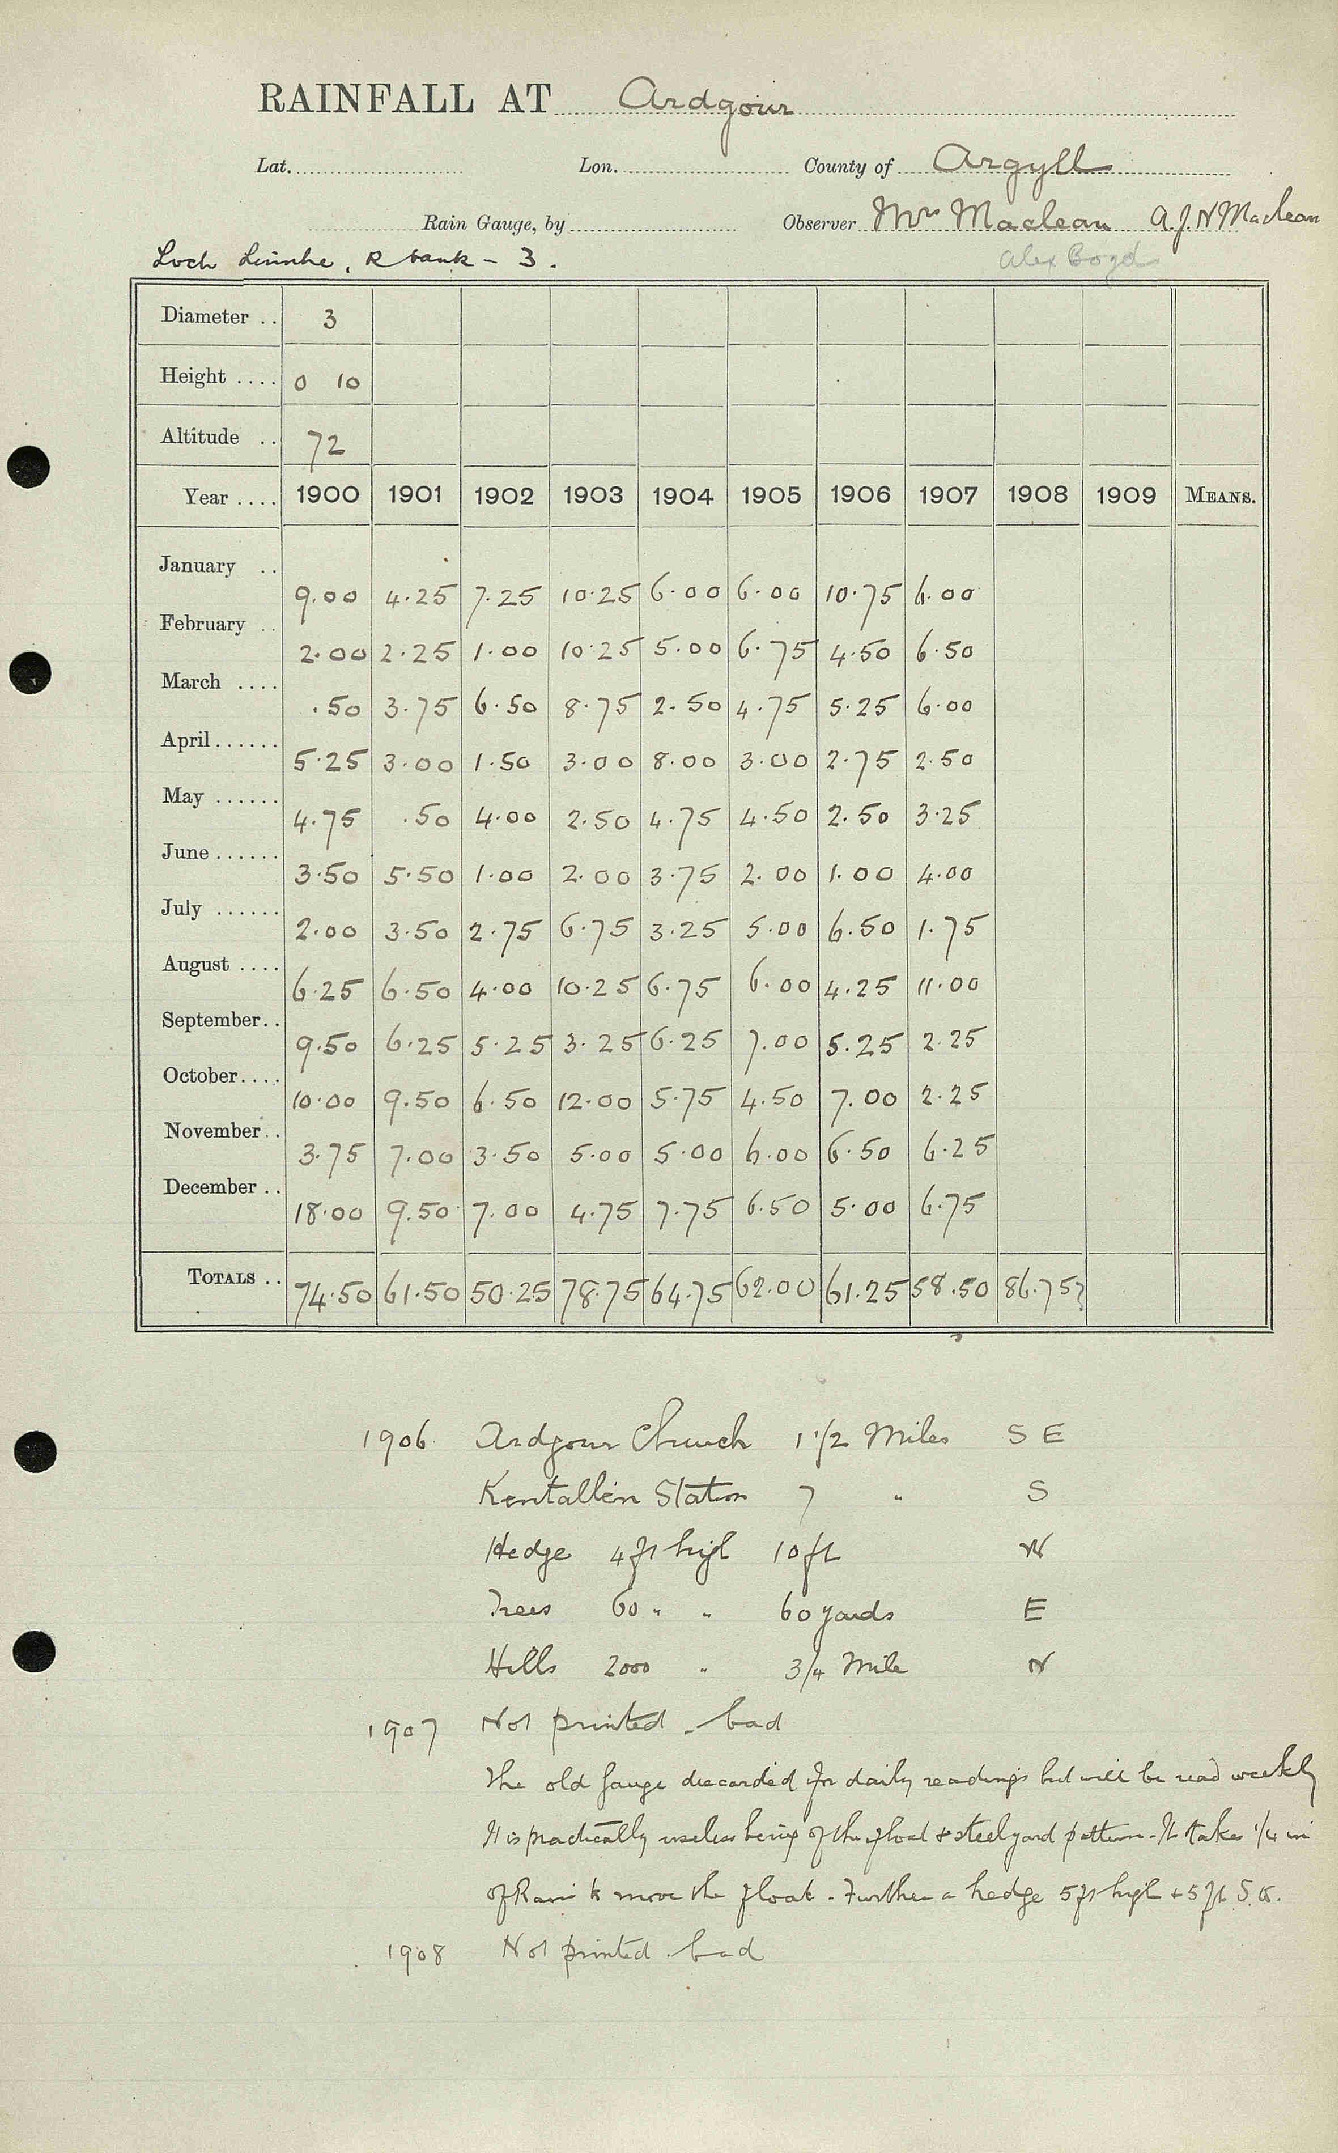 RAINFALL AT Ardgour
Lat. Lon. County of Argyll
Rain Gauge, by Observer Mrs Maclean A.J.N Maclean
Loch Linnhe, R bank - 3. Alex Boyd
Diameter .. 3
Height .... 0 10
Altitude .. 72
Year .... 1900 1901 1902 1903 1904 1905 1906 1907 1908 1909 MEANS.
January .. 9.00 4.25 7.25 10.25 6.00 6.00 10.75 6.00
February .. 2.00 2.25 1.00 10.25 5.00 6.75 4.50 6.50
March .... .50 3.75 6.50 8.75 2.50 4.75 5.25 6.00
April...... 5.25 3.00 1.50 3.00 8.00 3.00 2.75 2.50
May ...... 4.75 .50 4.00 2.50 4.75 4.50 2.50 3.25
June ...... 3.50 5.50 1.00 2.00 3.75 2.00 1.00 4.00
July ...... 2.00 3.50 2.75 6.75 3.25 5.00 6.50 1.75
August .... 6.25 6.50 4.00 10.25 6.75 6.00 4.25 11.00
September.. 9.50 6.25 5.25 3.25 6.25 7.00 5.25 2.25
October.... 10.00 9.50 6.50 12.00 5.75 4.50 7.00 2.25
November.. 3.75 7.00 3.50 5.00 5.00 6.00 6.50 6.25
December .. 18.00 9.50 7.00 4.75 7.75 6.50 5.00 6.75
TOTALS .. 74.50 61.50 50.25 78.75 64.75 62.00 61.25 58.50 86.75?
1906 Ardgour Church 1 1/2 Miles S E
Kentallen Station 7 " S
Hedge 4 ft high 10 ft W
Trees 60 " " 60 yards E
Hills 2000 " 3/4 Mile N
1907 Not printed - bad
The old gauge discarded for daily readings but will be read weekly
It is practically useless being of the float & steelyard pattern - It takes 1/4 in
of Rain to move the float - Further a hedge 5 ft high + 5 ft S.
1908 Not printed - bad